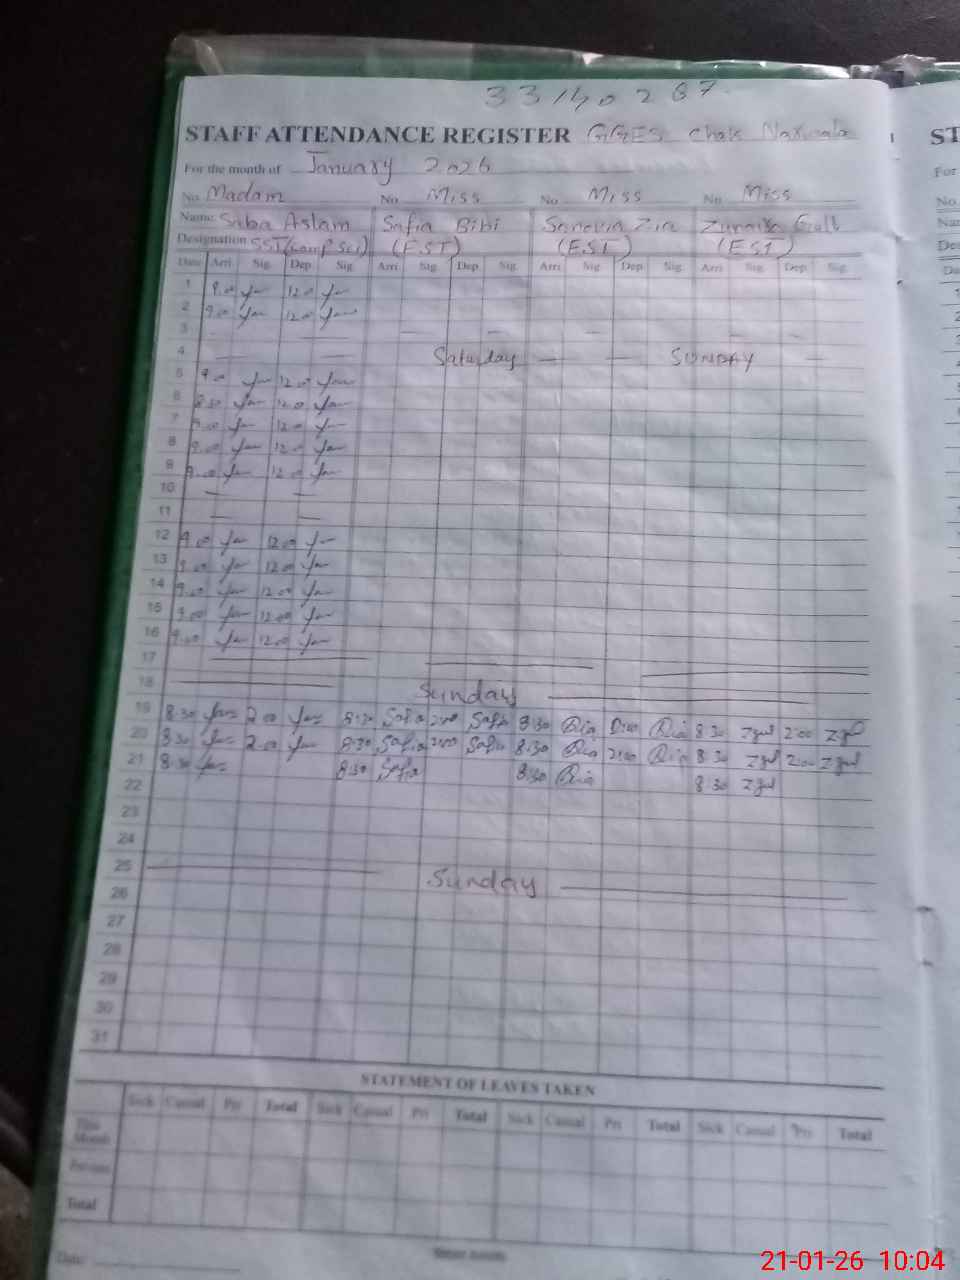 33140267
STAFF ATTENDANCE REGISTER GGES Chak
For the month of January 2026
No. Madam No. Miss No. Miss No. Miss
Name: Saba Aslam Safia Bibi Zia Gull
Designation: SST(Comp Sci) (EST) (EST) (EST)
Date Arri. Sig. Dep. Sig. Arri. Sig. Dep. Sig. Arri. Sig. Dep. Sig. Arri. Sig. Dep. Sig.
1 9.00 12.00
2 9.00 12.00
3
4 Saturday SUNDAY
5 9.00 12.00
6 8.30 12.00
7 9.00 12.00
8 9.00 12.00
9 9.00 12.00
10
11
12 9.00 12.00
13 9.00 12.00
14 9.00 12.00
15 9.00 12.00
16 9.00 12.00
17
18 Sunday
19 8.30 2.00 8:30 Safia 2:00 Safia 8:30 2:00 8:30 Zgul 2:00 Zgul
20 8.30 2.00 8:30 Safia 2:00 Safia 8:30 2:00 8:30 Zgul 2:00 Zgul
21 8.30 8:30 Safia 8:30 8:30 Zgul
22
23
24
25 Sunday
26
27
28
29
30
31
STATEMENT OF LEAVES TAKEN
Sick Casual Pri Total Sick Casual Pri Total Sick Casual Pri Total Sick Casual Pri Total
This Month
Previous
Total
Date:
21-01-26 10:04